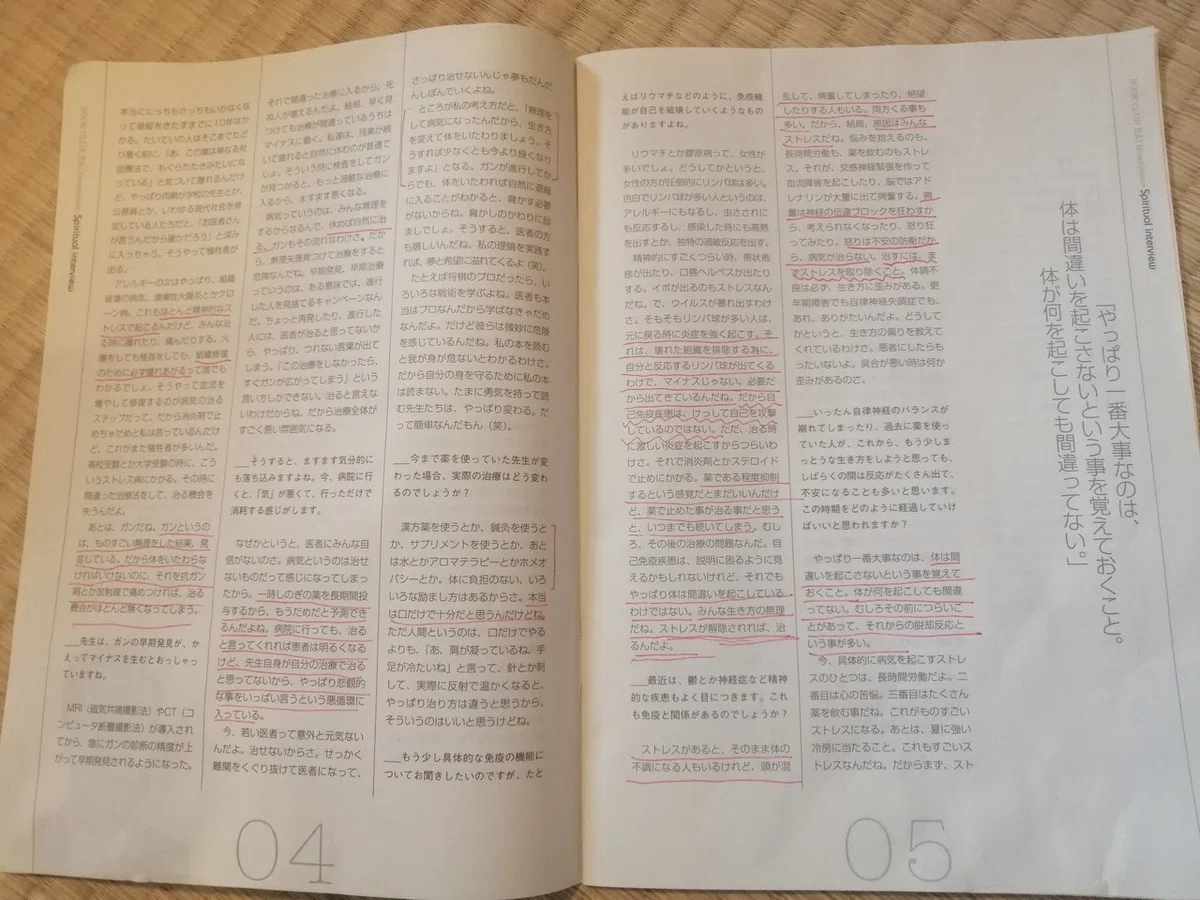 Spiritual Interview
本当ににっちもさっちもいかなくな
って破綻をきたすまでに10年はか
かる。たいていの人はそこまでたど
り着く前に、「あ、この薬は単なる対
症療法で、もぐらたたきみたいにな
っている」と気づいて離れるんだけ
ど、やっぱり両親が学校の先生とか、
公務員とか、いわゆる現代社会を肯
定している人たちだと、「お医者さん
が言うんだから確かだろう」と深み
に入っちゃう。そうやって犠牲者が
出る。
アレルギーの次はやっぱり、組織
破壊の病気。潰瘍性大腸炎とかクロ
ーン病。これもほとんど精神的なス
トレスで起こるんだけど、みんな治
る時に腫れたり、痛んだりする。火
傷をしても怪我をしても、組織修復
のために必ず腫れあがるって誰でも
わかるでしょ。そうやって血流を
増やして修復するのが病気の治る
ステップだって、だから消炎剤で止
めちゃだめと私は言っているんだけ
ど、これがまた犠牲者が多いんだ。
高校受験とか大学受験の時に、こう
いうストレス病にかかる。その時に
間違った治療法をして、治る機会を
失うんだよ。
あとは、ガンだね。ガンというの
は、ものすごい無理をした結果、発
症している。だから体をいたわらな
ければいけないのに、それを抗ガン
剤とか放射線で痛めつければ、治る
機会がほとんど無くなってしまう。
＿＿先生は、ガンの早期発見が、か
えってマイナスを生むとおっしゃっ
ていますね。
MRI（磁気共鳴撮影法）やCT（コ
ンピュータ断層撮影法）が導入され
てから、急にガンの診断の精度が上
がって早期発見されるようになった。
それで間違った治療に入るから、死
ぬ人が増えるんだよ。結局、早く見
つけても治療が間違っているうちは
マイナスに働く。私達は、残業が続
いて疲れると自然に休むのが普通で
しょ。そういう時に検査をしてガン
が見つかると、もっと過酷な治療に
入るから、ますます悪くなる。
病気っていうのは、みんな無理を
するからなるんで、休めば自然に治
る。ガンもその流れなわけさ。だか
ら、無理矢理見つけて治療をすると
危険なんだね。早期発見、早期治療
っていうのは、ある意味では、進行
した人を見捨てるキャンペーンなん
だ。ちょっと再発したり、進行した
人には、医者が治ると思ってないか
ら、やっぱり、つれない言葉が出て
しまう。「この治療をしなかったら、
すぐガンが広がってしまう」という
言い方しかできない。治ると言えな
いわけだからね。だから治療全体が
すごく悪い雰囲気になる。
＿＿そうすると、ますます気分的に
も落ち込みますよね。今、病院に行
くと、「気」が悪くて、行っただけで
消耗する感じがします。
なぜかというと、医者にみんな自
信がないのさ。病気というのは治せ
ないものだって感じになってしまっ
たから。一時しのぎの薬を長期間投
与するから、もうだめだと予測でき
るんだよね。病院に行っても、治る
と言ってくれれば患者は明るくなる
けど、先生自身が自分の治療で治る
と思ってないから、やっぱり悲観的
な事をいっぱい言うという悪循環に
入っている。
今、若い医者って意外と元気ない
んだよ。治せないからさ。せっかく
難関をくぐり抜けて医者になって、
さっぱり治せないんじゃ夢もだんだ
んしぼんでいくよね。
ところが私の考え方だと、「無理を
して病気になったんだから、生き方
を変えて体をいたわりましょう。そ
うすれば少なくとも今より良くなり
ますよ」となる。ガンが進行してか
らでも、体をいたわれば自然に退縮
に入ることがわかると、脅かす必要
がないからね。脅かしのかわりに励
ましでしょ。そうすると、医者の方
も嬉しいんだね。私の理論を実践す
れば、夢と希望に溢れてくるよ（笑）。
たとえば将棋のプロだったら、い
ろいろな戦術を学ぶよね。医者も本
当はプロなんだから学ばなきゃだめ
なんだよ。だけど彼らは微妙に危険
を感じているんだね。私の本を読む
と我が身が危ないとわかるわけさ。
だから自分の身を守るために私の本
は読まない。たまに勇気を持って読
む先生たちは、やっぱり変わる。だ
って簡単なんだもん（笑）。
＿＿今まで薬を使っていた先生が変
わった場合、実際の治療はどう変わ
るのでしょうか？
漢方薬を使うとか、鍼灸を使うと
か、サプリメントを使うとか、あと
は水とかアロマテラピーとかホメオ
パシーとか。体に負担のない、いろ
いろな励まし方はあるからさ。本当
は口だけで十分だと思うんだけどね。
ただ人間というのは、口だけでやる
よりも、「あ、肩が凝っているね、手
足が冷たいね」と言って、針とか刺
して、実際に反射で温かくなると、
やっぱり治り方は違うと思うから、
そういうのはいいと思うけどね。
＿＿もう少し具体的な免疫の機能に
ついてお聞きしたいのですが、たと
04
えばリウマチなどのように、免疫機
能が自己を破壊していくようなもの
がありますよね。
リウマチとか膠原病って、女性が
多いでしょ。どうしてかというと、
女性の方が圧倒的にリンパ球は多い。
色白でリンパ球が多い人というのは、
アレルギーにもなるし、虫さされに
も反応するし、感染した時にも高熱
を出すとか、独特の過敏反応を出す。
精神的にすごくつらい時、帯状疱
疹が出たり、口唇ヘルペスが出たり
する。イボが出るのもストレスなん
だね。で、ウイルスが暴れ出すわけ
さ。そもそもリンパ球が多い人は、
元に戻る時に炎症を強く起こす。そ
れは、壊れた組織を排除する為に、
自分と反応するリンパ球が出てくる
わけで、マイナスじゃない。必要だ
から出てきているんだね。だから自
己免疫疾患は、けっして自己を攻撃
しているのではない。ただ、治る時
に激しい炎症を起こすからつらいわ
けさ。それで消炎剤とかステロイド
で止めにかかる。薬である程度抑制
するという感覚だとまだいいんだけ
ど、薬で止めた事が治る事だと思う
と、いつまでも続いてしまう。むし
ろ、その後の治療の問題なんだ。自
己免疫疾患は、説明に困るように見
えるかもしれないけれど、それでも
やっぱり体は間違いを起こしている
わけではない。みんな生き方の無理
だね。ストレスが解除されれば、治
るんだよ。
＿＿最近は、鬱とか神経症など精神
的な疾患もよく目につきます。これ
も免疫と関係があるのでしょうか？
ストレスがあると、そのまま体の
不調になる人もいるけれど、頭が混
乱して、興奮してしまったり、絶望
したりする人もいる。両方くる事も
多い。だから、結局、原因はみんな
ストレスだね。悩みを抱えるのも、
長時間労働も、薬を飲むのもストレ
ス。それが、交感神経緊張を作って
血流障害を起こしたり、脳ではアド
レナリンが大量に出て興奮する。興
奮は神経の伝達ブロックを狂わすか
ら、考えられなくなったり、怒り狂
ってみたり。怒りは不安の防衛だか
ら、病気が治らない。治すには、ま
ずストレスを取り除くこと。体調不
良は必ず、生き方に歪みがある。更
年期障害でも自律神経失調症でも、
あれ、ありがたいんだよ。どうして
かというと、生き方の偏りを教えて
くれているわけさ。患者にしたらも
ったいないよ。具合が悪い時は何か
歪みがあるのさ。
＿＿いったん自律神経のバランスが
崩れてしまったり、過去に薬を使っ
ていた人が、これから、もう少しま
っとうな生き方をしようと思っても、
しばらくの間は反応がたくさん出て、
不安になることも多いと思います。
この時期をどのように経過していけ
ばいいと思われますか？
やっぱり一番大事なのは、体は間
違いを起こさないという事を覚えて
おくこと。体が何を起こしても間違
ってない。むしろその前につらいこ
とがあって、それからの脱却反応と
いう事が多い。
今、具体的に病気を起こすストレ
スのひとつは、長時間労働だよ。二
番目は心の苦悩。三番目はたくさん
薬を飲む事だね。これがものすごい
ストレスになる。あとは、夏に強い
冷房に当たること。これもすごいス
トレスなんだね。だからまず、スト
「やっぱり一番大事なのは、
体は間違いを起こさないという事を覚えておくこと。
体が何を起こしても間違ってない。」
Spiritual Interview
05